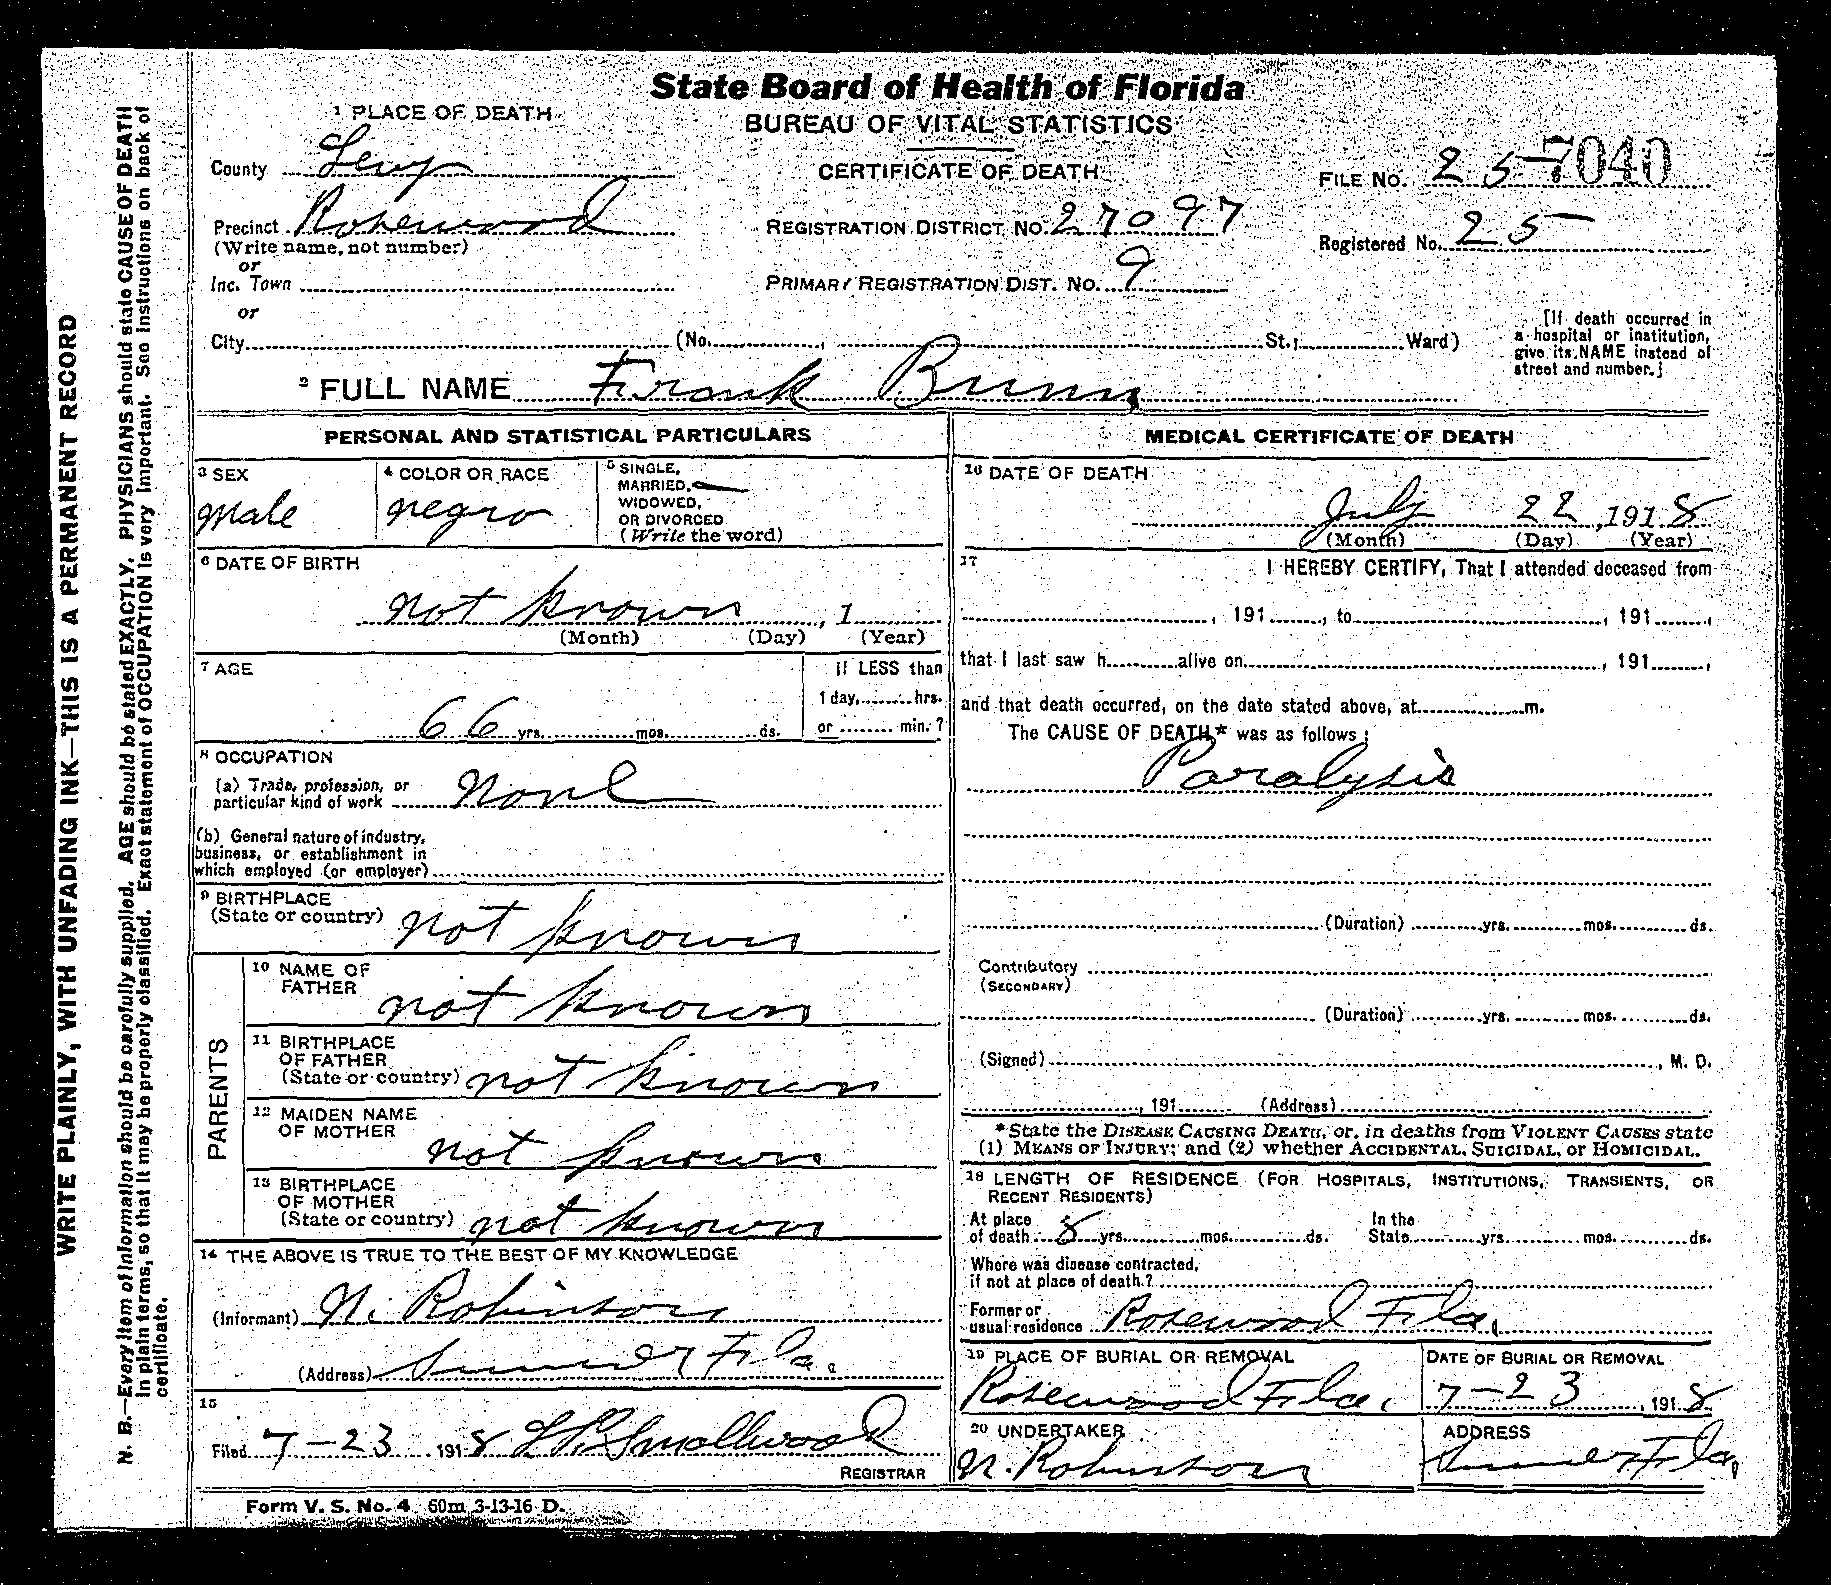 State Board of Health of Florida
BUREAU OF VITAL STATISTICS
CERTIFICATE OF DEATH
1 PLACE OF DEATH
County Levy
Precinct Rosewood
(Write name, not number)
or
Inc. Town
or
City (No. , St.; Ward)
REGISTRATION DISTRICT NO. 27097
PRIMARY REGISTRATION DIST. NO. 9
FILE NO. 25 7040
Registered No. 25
[If death occurred in
a hospital or institution,
give its NAME instead of
street and number.]
2 FULL NAME Frank Bunn
PERSONAL AND STATISTICAL PARTICULARS
3 SEX
Male
4 COLOR OR RACE
negro
5 SINGLE,
MARRIED,
WIDOWED,
OR DIVORCED
(Write the word)
6 DATE OF BIRTH
not known , 1
(Month) (Day) (Year)
7 AGE
66 yrs. mos. ds.
If LESS than
1 day, hrs.
or min.?
8 OCCUPATION
(a) Trade, profession, or
particular kind of work None
(b) General nature of industry,
business, or establishment in
which employed (or employer)
9 BIRTHPLACE
(State or country) not known
PARENTS
10 NAME OF
FATHER
not known
11 BIRTHPLACE
OF FATHER
(State or country) not known
12 MAIDEN NAME
OF MOTHER
not known
13 BIRTHPLACE
OF MOTHER
(State or country) not known
14 THE ABOVE IS TRUE TO THE BEST OF MY KNOWLEDGE
(Informant) N. Robinson
(Address) Sumner Fla.
15
Filed 7-23 1918 L P Smallwood
REGISTRAR
MEDICAL CERTIFICATE OF DEATH
16 DATE OF DEATH
July 22, 1918
(Month) (Day) (Year)
17
I HEREBY CERTIFY, That I attended deceased from
, 191 , to , 191 ,
that I last saw h alive on , 191 ,
and that death occurred, on the date stated above, at m.
The CAUSE OF DEATH* was as follows:
Paralysis
(Duration) yrs. mos. ds.
Contributory
(SECONDARY)
(Duration) yrs. mos. ds.
(Signed) , M. D.
, 191 (Address)
*State the DISEASE CAUSING DEATH, or, in deaths from VIOLENT CAUSES state
(1) MEANS OF INJURY; and (2) whether ACCIDENTAL, SUICIDAL, or HOMICIDAL.
18 LENGTH OF RESIDENCE (FOR HOSPITALS, INSTITUTIONS, TRANSIENTS, OR
RECENT RESIDENTS)
At place In the
of death 8 yrs. mos. ds. State yrs. mos. ds.
Where was disease contracted,
if not at place of death?
Former or
usual residence Rosewood Fla.
19 PLACE OF BURIAL OR REMOVAL
Rosewood Fla.
DATE OF BURIAL OR REMOVAL
7-23, 1918
20 UNDERTAKER
N. Robinson
ADDRESS
Sumner Fla.
Form V. S. No. 4 60m 3-13-16 D.
WRITE PLAINLY, WITH UNFADING INK—THIS IS A PERMANENT RECORD
N. B.—Every item of information should be carefully supplied. AGE should be stated EXACTLY. PHYSICIANS should state CAUSE OF DEATH
in plain terms, so that it may be properly classified. Exact statement of OCCUPATION is very important. See instructions on back of
certificate.